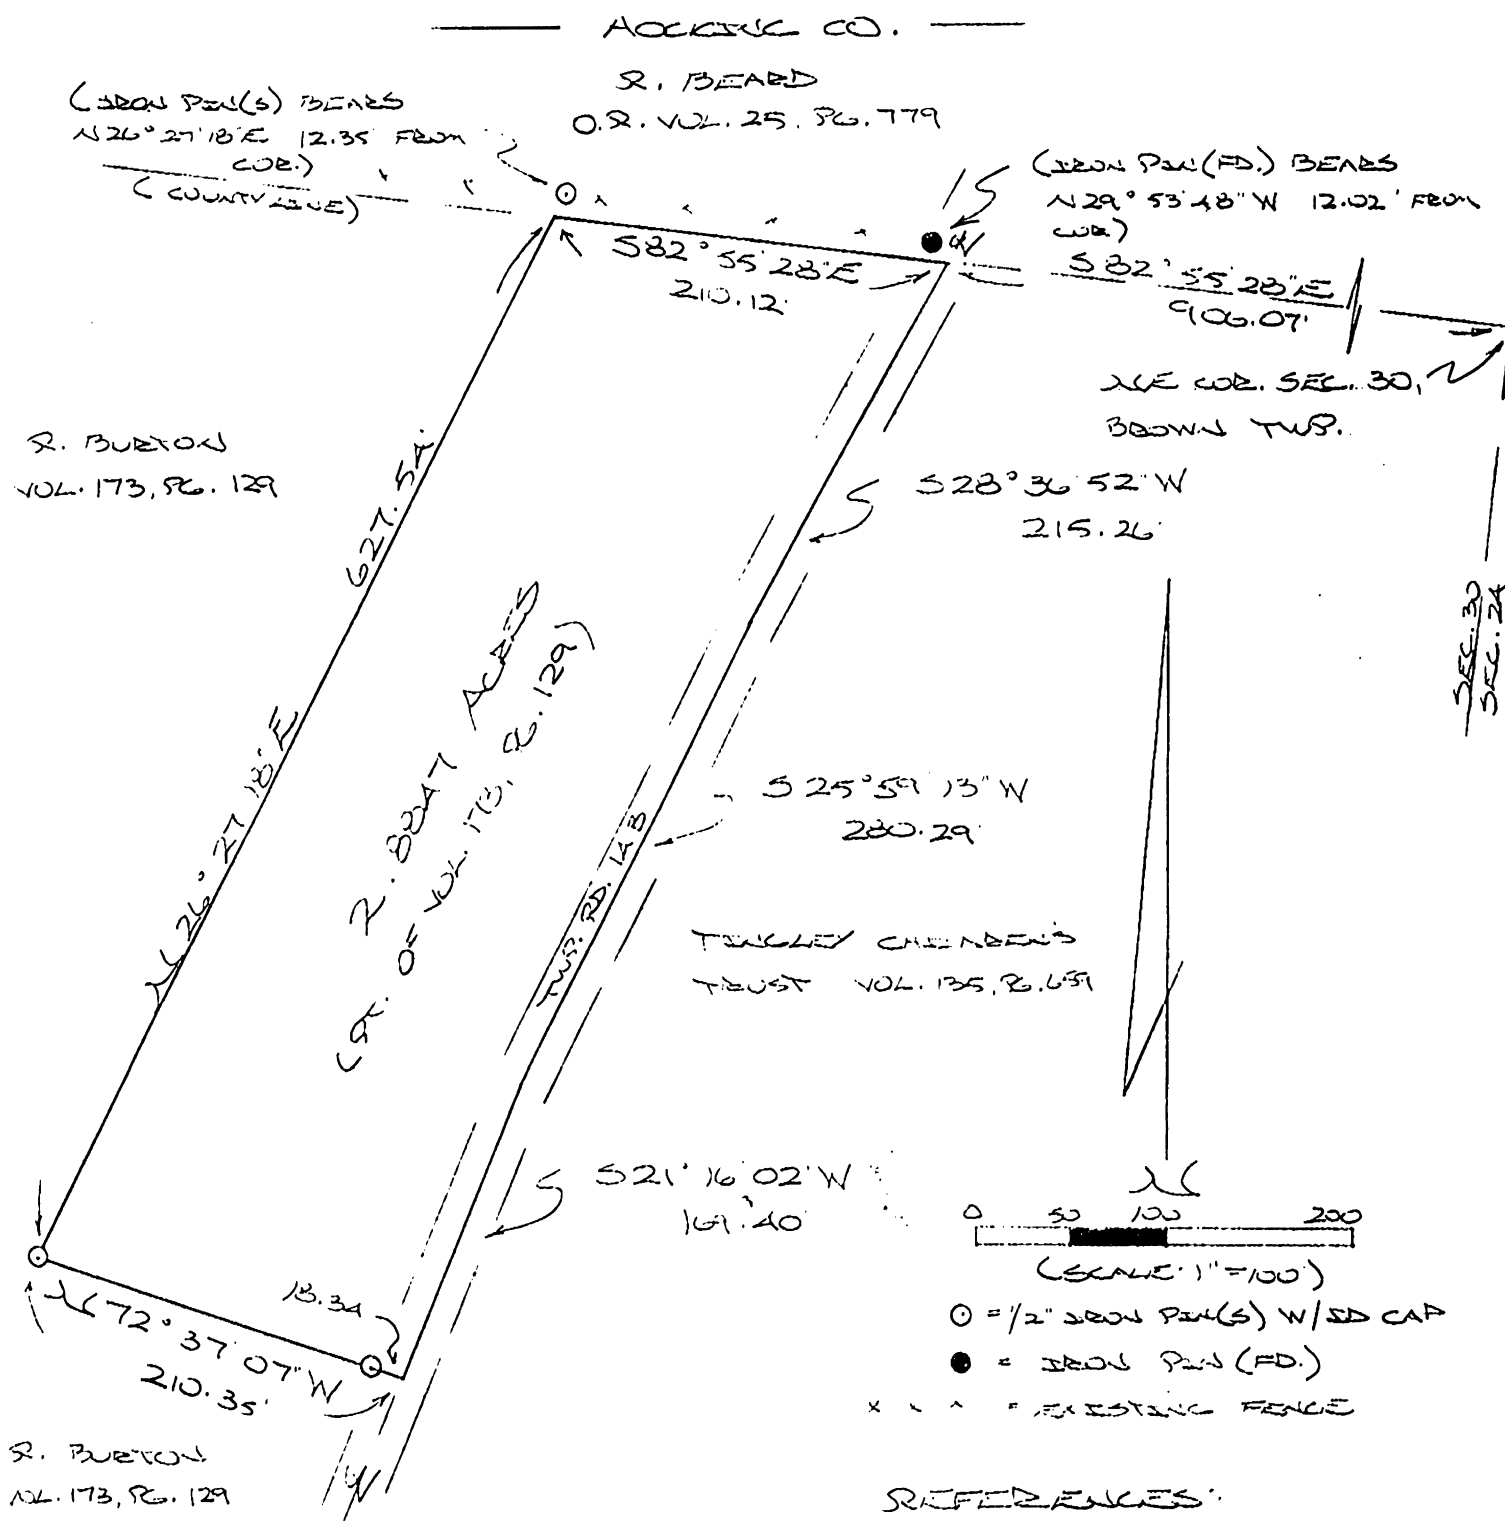 HOCKING CO.
R. BEARD
O.R. VOL. 25, PG. 779
(IRON PIN(S) BEARS
N26°27'18"E 12.35' FROM
COR.)
(COUNTY LINE)
(IRON PIN(FD.) BEARS
N29°53'48"W 12.02' FROM
COR)
S82°55'28"E
210.12'
S82°55'28"E
906.07'
NE COR. SEC. 30,
BROWN TWP.
R. BURTON
VOL. 173, PG. 129
627.54'
N26°27'18"E
S28°36'52"W
215.26'
SEC. 30
SEC. 24
2.8847 ACRES
(PT. OF VOL. 173, PG. 129)
S25°59'13"W
280.29'
TWP. RD. 14B
TINGLEY CHILDREN'S
TRUST VOL. 135, PG. 659
S21°16'02"W
169.40'
N
0 50 100 200
(SCALE: 1"=100')
18.34
N72°37'07"W
210.35'
⊙ = 1/2" IRON PIN(S) W/ID CAP
● = IRON PIN (FD.)
x x x = EXISTING FENCE
R. BURTON
VOL. 173, PG. 129
REFERENCES: